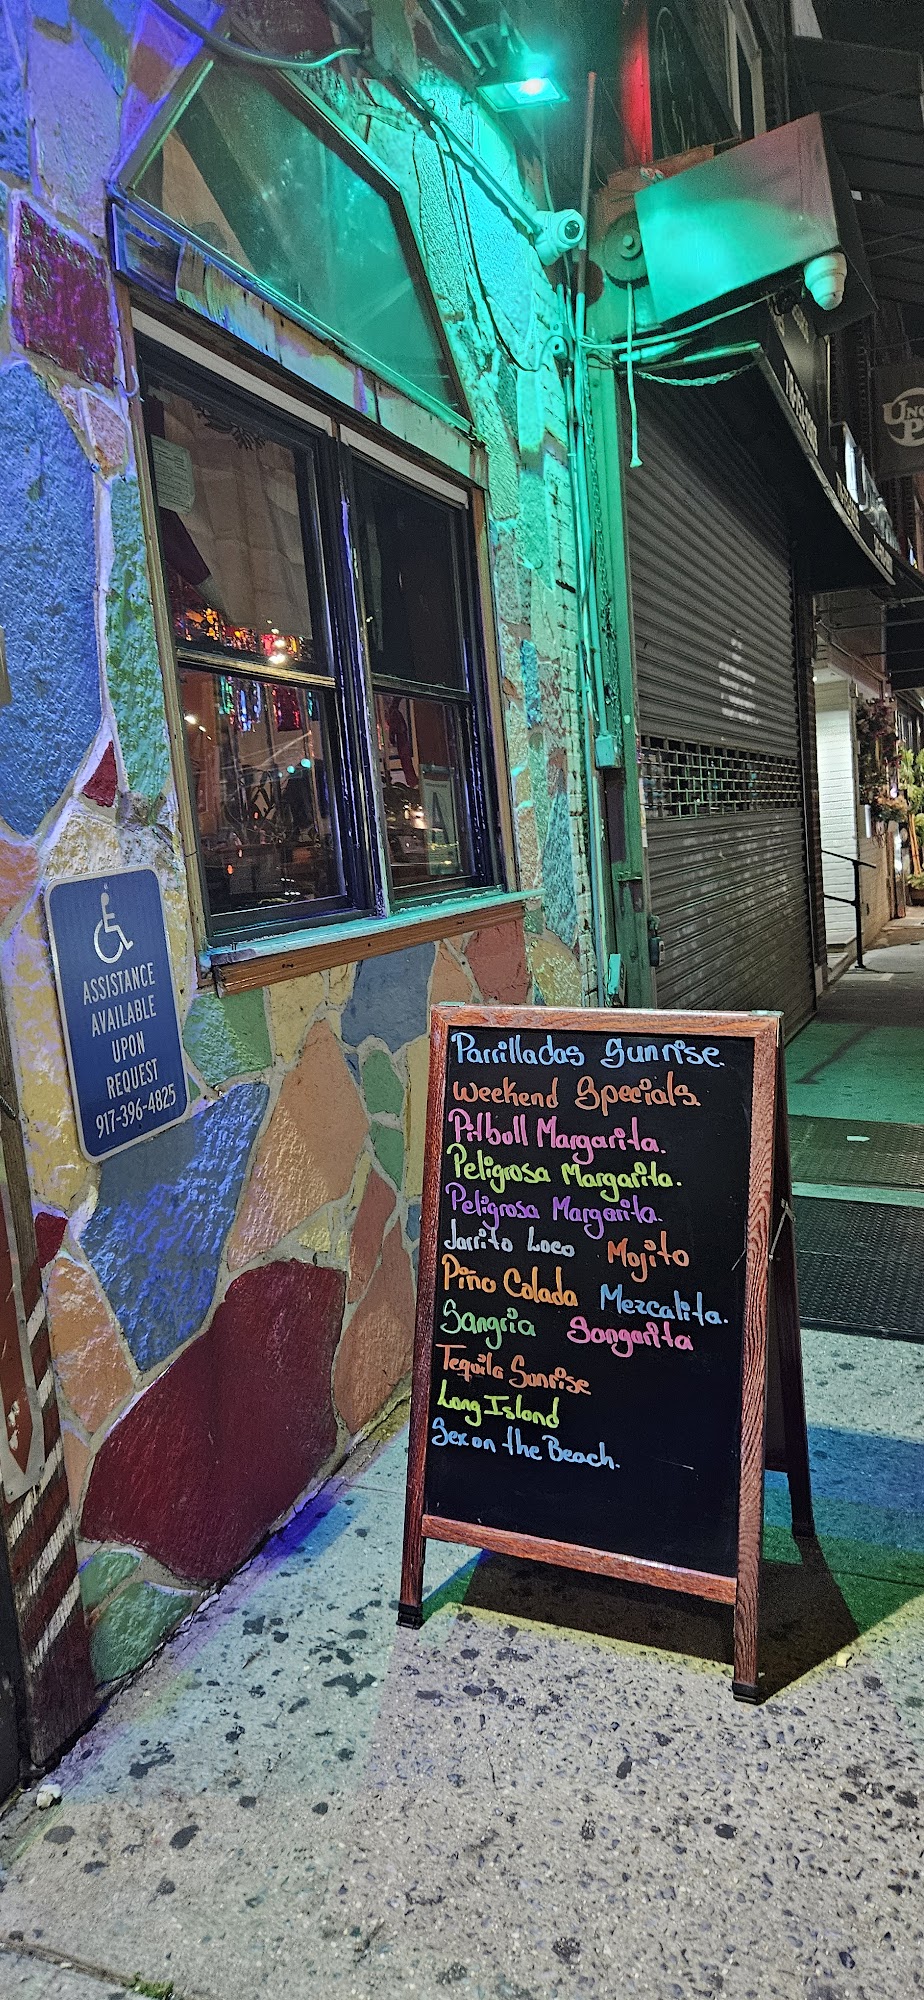 ASSISTANCE
AVAILABLE
UPON
REQUEST
917-396-4825
Parrilladas Sunrise.
Weekend Specials.
Pitboll Margarita.
Peligrosa Margarita.
Peligrosa Margarita.
Jarrito Loco Mojito
Piño Colada Mezcalita.
Sangria Sangarita
Tequila Sunrise
Long Island
Sex on the Beach.